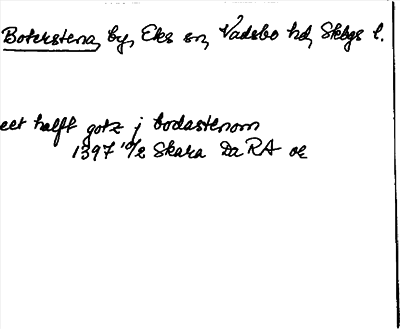 Boterstena, by, Eks sn, Vadsbo hd, Skbgs l.
eet halff gotz j bodastenom
1397 10/2 Skara Da RA or